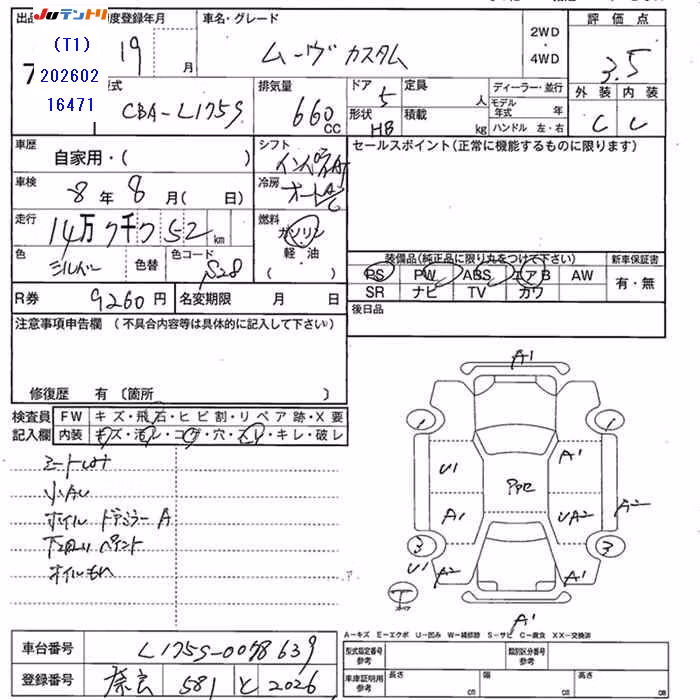 出品
JUテントリ
初度登録年月
車名・グレード
2WD・4WD
評価点
(T1)
7
202602
16471
19
月
ムーヴ カスタム
3.5
型式
CBA-L175S
排気量
660
CC
ドア
5
形状
HB
定員
人
積載
kg
ディーラー・並行
モデル年式
年
ハンドル 左・右
外装
内装
C
C
車歴
自家用・( )
シフト
インパネAT
セールスポイント(正常に機能するものに限ります)
車検
8年8月( 日)
冷房
オートA/C
走行
14万7千752km
燃料
ガソリン
軽油
( )
色
シルバー
色替
色コード
S28
装備品(純正品に限り丸をつけて下さい)
新車保証書
PS
PW
ABS
エアB
AW
有・無
SR
ナビ
TV
カワ
R券
9260円
名変期限
月
日
後日品
注意事項申告欄(不具合内容等は具体的に記入して下さい)
修復歴 有〔箇所 〕
検査員記入欄
FW
キズ・飛石・ヒビ割・リペア跡・X要
内装
キズ・汚レ・コゲ・穴・スレ・キレ・破レ
シートレハ
小AU
ホイル ドアミラーA
下廻り ペイント
オイルもれ
A1
1
1
U1
A1
PPE
A2
A1
UA2
3
3
U1
A2
A1
T
A1
A-キズ E-エクボ U-凹み W-補修跡 S-サビ C-腐食 XX-交換済
車台番号
L175S-0078639
型式指定番号
参考
類別区分番号
参考
登録番号
奈良
581
と
2026
車庫証明用
参考
長さ
cm
幅
cm
高さ
cm